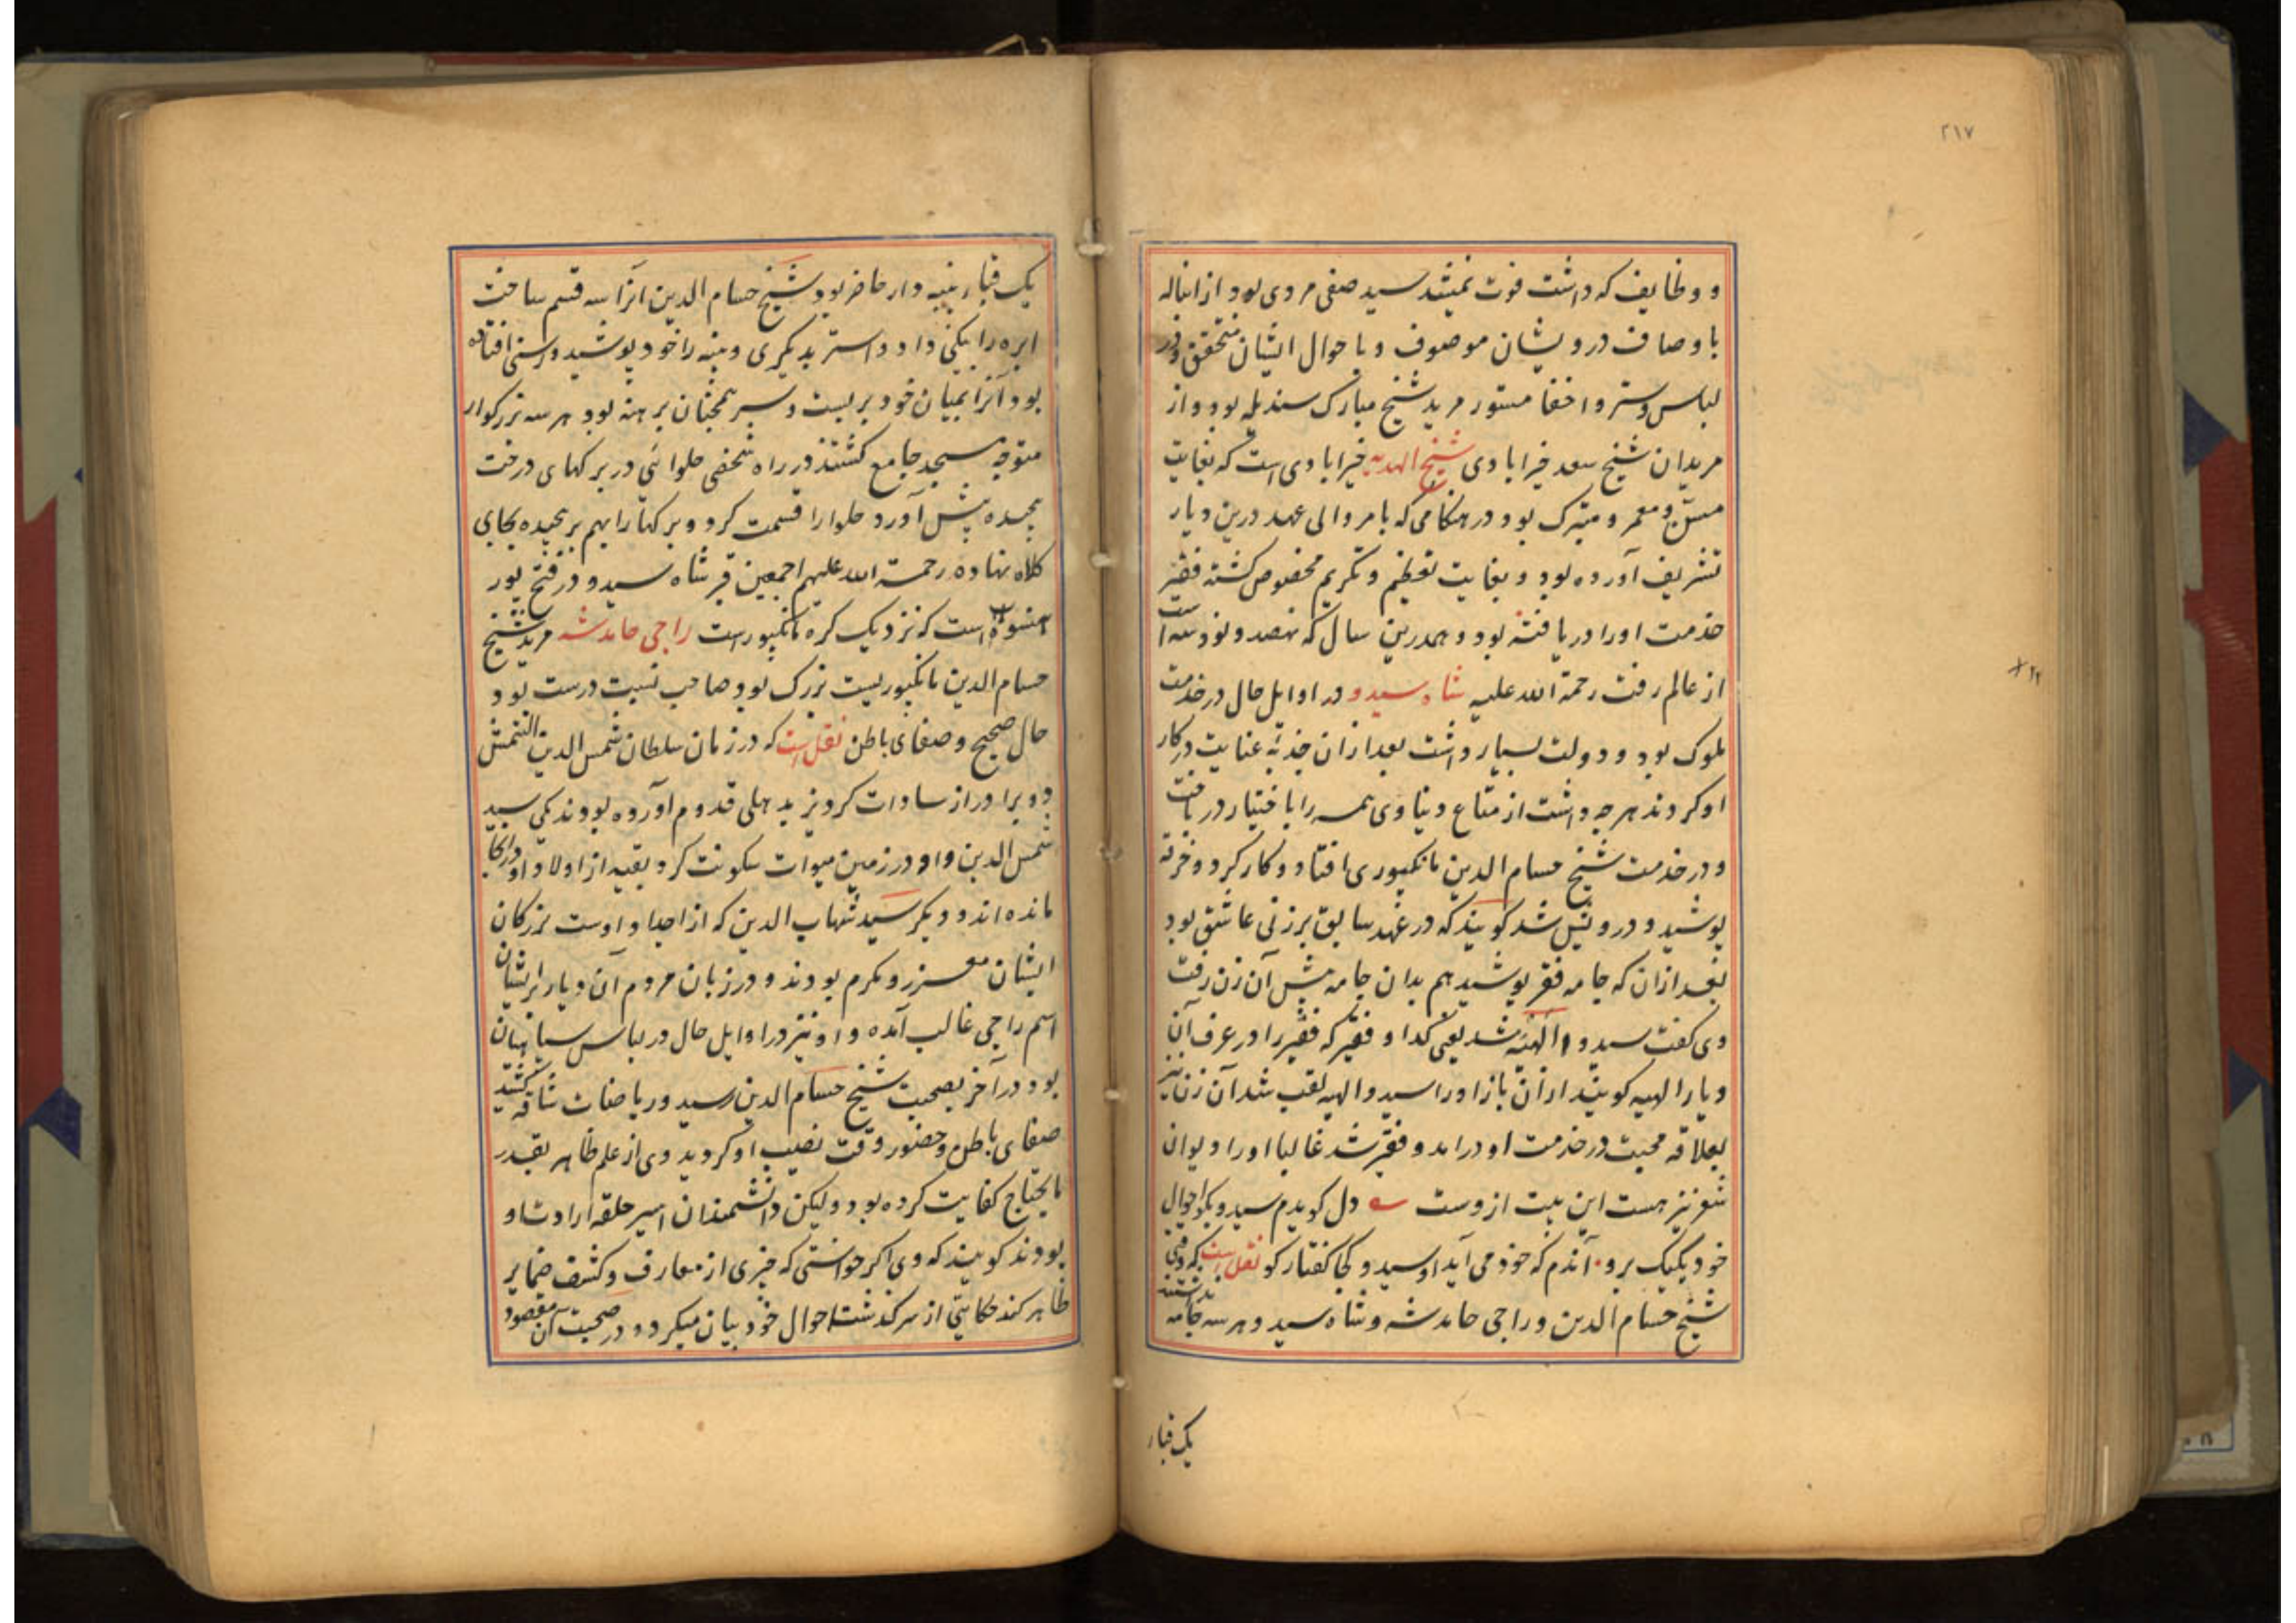 ۲۱۷
و وظایف که داشت فوت نمیشد سید صفی مردی بود از
باوصاف درویشان موصوف و باحوال ایشان متحقق و در
لباس و ستر و اخفا مستور مرید شیخ مبارک سندیله بود و از
مریدان شیخ سعد خیرابادی شیخ الهدیه خیرابادی است که بغایت
مسن و معمر و متبرک بود در هنکامی که بامر والی عهد درین دیار
تشریف آورده بود و بغایت تعظیم و تکریم مخصوص کشته فقیر
خدمت او را دریافته بود و همدرین سال که نهصد و نود سه است
از عالم رفت رحمة الله علیه شاه سیدو در اوایل حال در خدمت
ملوک بود و دولت بسیار داشت بعد از ان جذبه عنایت در کار
او کردند هر چه داشت از متاع دنیاوی همه را باختیار در باخت
و در خدمت شیخ حسام الدین مانکپوری افتاد و کار کرد و خرقه
پوشید و درویش شد کویند که در عهد سابق بر زنی عاشق بود
بعد ازان که جامه فقر پوشید هم بدان جامه پیش آن زن رفت
وی کفت سیدو الهیه شد یعنی کدا و فقیر که فقیر را در عرف آن
دیار الهیه کویند از ان باز او را سیدو الهیه لقب شد آن زن نیز
بعلاقه محبت در خدمت او درامد و فقیر شد غالبا او را دیوان
شعر نیز هست این بیت از وست دل کویدم سیدو بکو احوال
خود یکیک برو آندم که خود می آید او سیدو کجا کفتار کو نقل است که وقتی
شیخ حسام الدین و راجی حامد شه و شاه سیدو هر سه جامه نداشتند
یک قباء
یک قباء پنبه دار حاضر بود شیخ حسام الدین انرا سه قسم ساخت
ابره را بیکی داد و استر بدیکری و پنبه را خود پوشید و رسنی افتاده
بود آنرا بمیان خود بر بست و سر همچنان برهنه بود هر سه بزرکوار
متوجه مسجد جامع کشتند در راه شخصی حلوائی در برکهای درخت
پیچیده پیش آورد حلوا را قسمت کرد و برکها را بهم بر پیچیده بجای
کلاه نهاده رحمة الله علیهم اجمعین قبر شاه سیدو در فتح پور
است که نزدیک کره مانکپور است راجی حامد شه مرید شیخ
حسام الدین مانکپوریست بزرک بود و صاحب نسبت درست بود
حال صحیح و صفای باطن نقل است که در زمان سلطان شمس الدین التمش
دو برادر از سادات کردیز بدهلی قدوم آورده بودند یکی سید
شمس الدین و او در زمین میوات سکونت کرد بقیه از اولاد او در انجا
مانده اند و دیکر سید شهاب الدین که از اجداد اوست بزرکان
ایشان معزز و مکرم بودند و در زبان مردم آن دیار بر ایشان
اسم راجی غالب آمده و او نیز در اوایل حال در لباس سپاهیان
بود در آخر بصحبت شیخ حسام الدین رسید و ریاضات شاقه کشید
صفای باطن و حضور وقت نصیب او کردید وی از علم ظاهر بقدر
مایحتاج کفایت کرده بود ولیکن دانشمندان اسیر حلقه ارادت او
بودند کویند که وی اکر خواستی که چیزی از معارف و کشف ضمایر
ظاهر کند حکایتی از سرکذشت احوال خود بیان میکرد و در صحبت آن مقصود